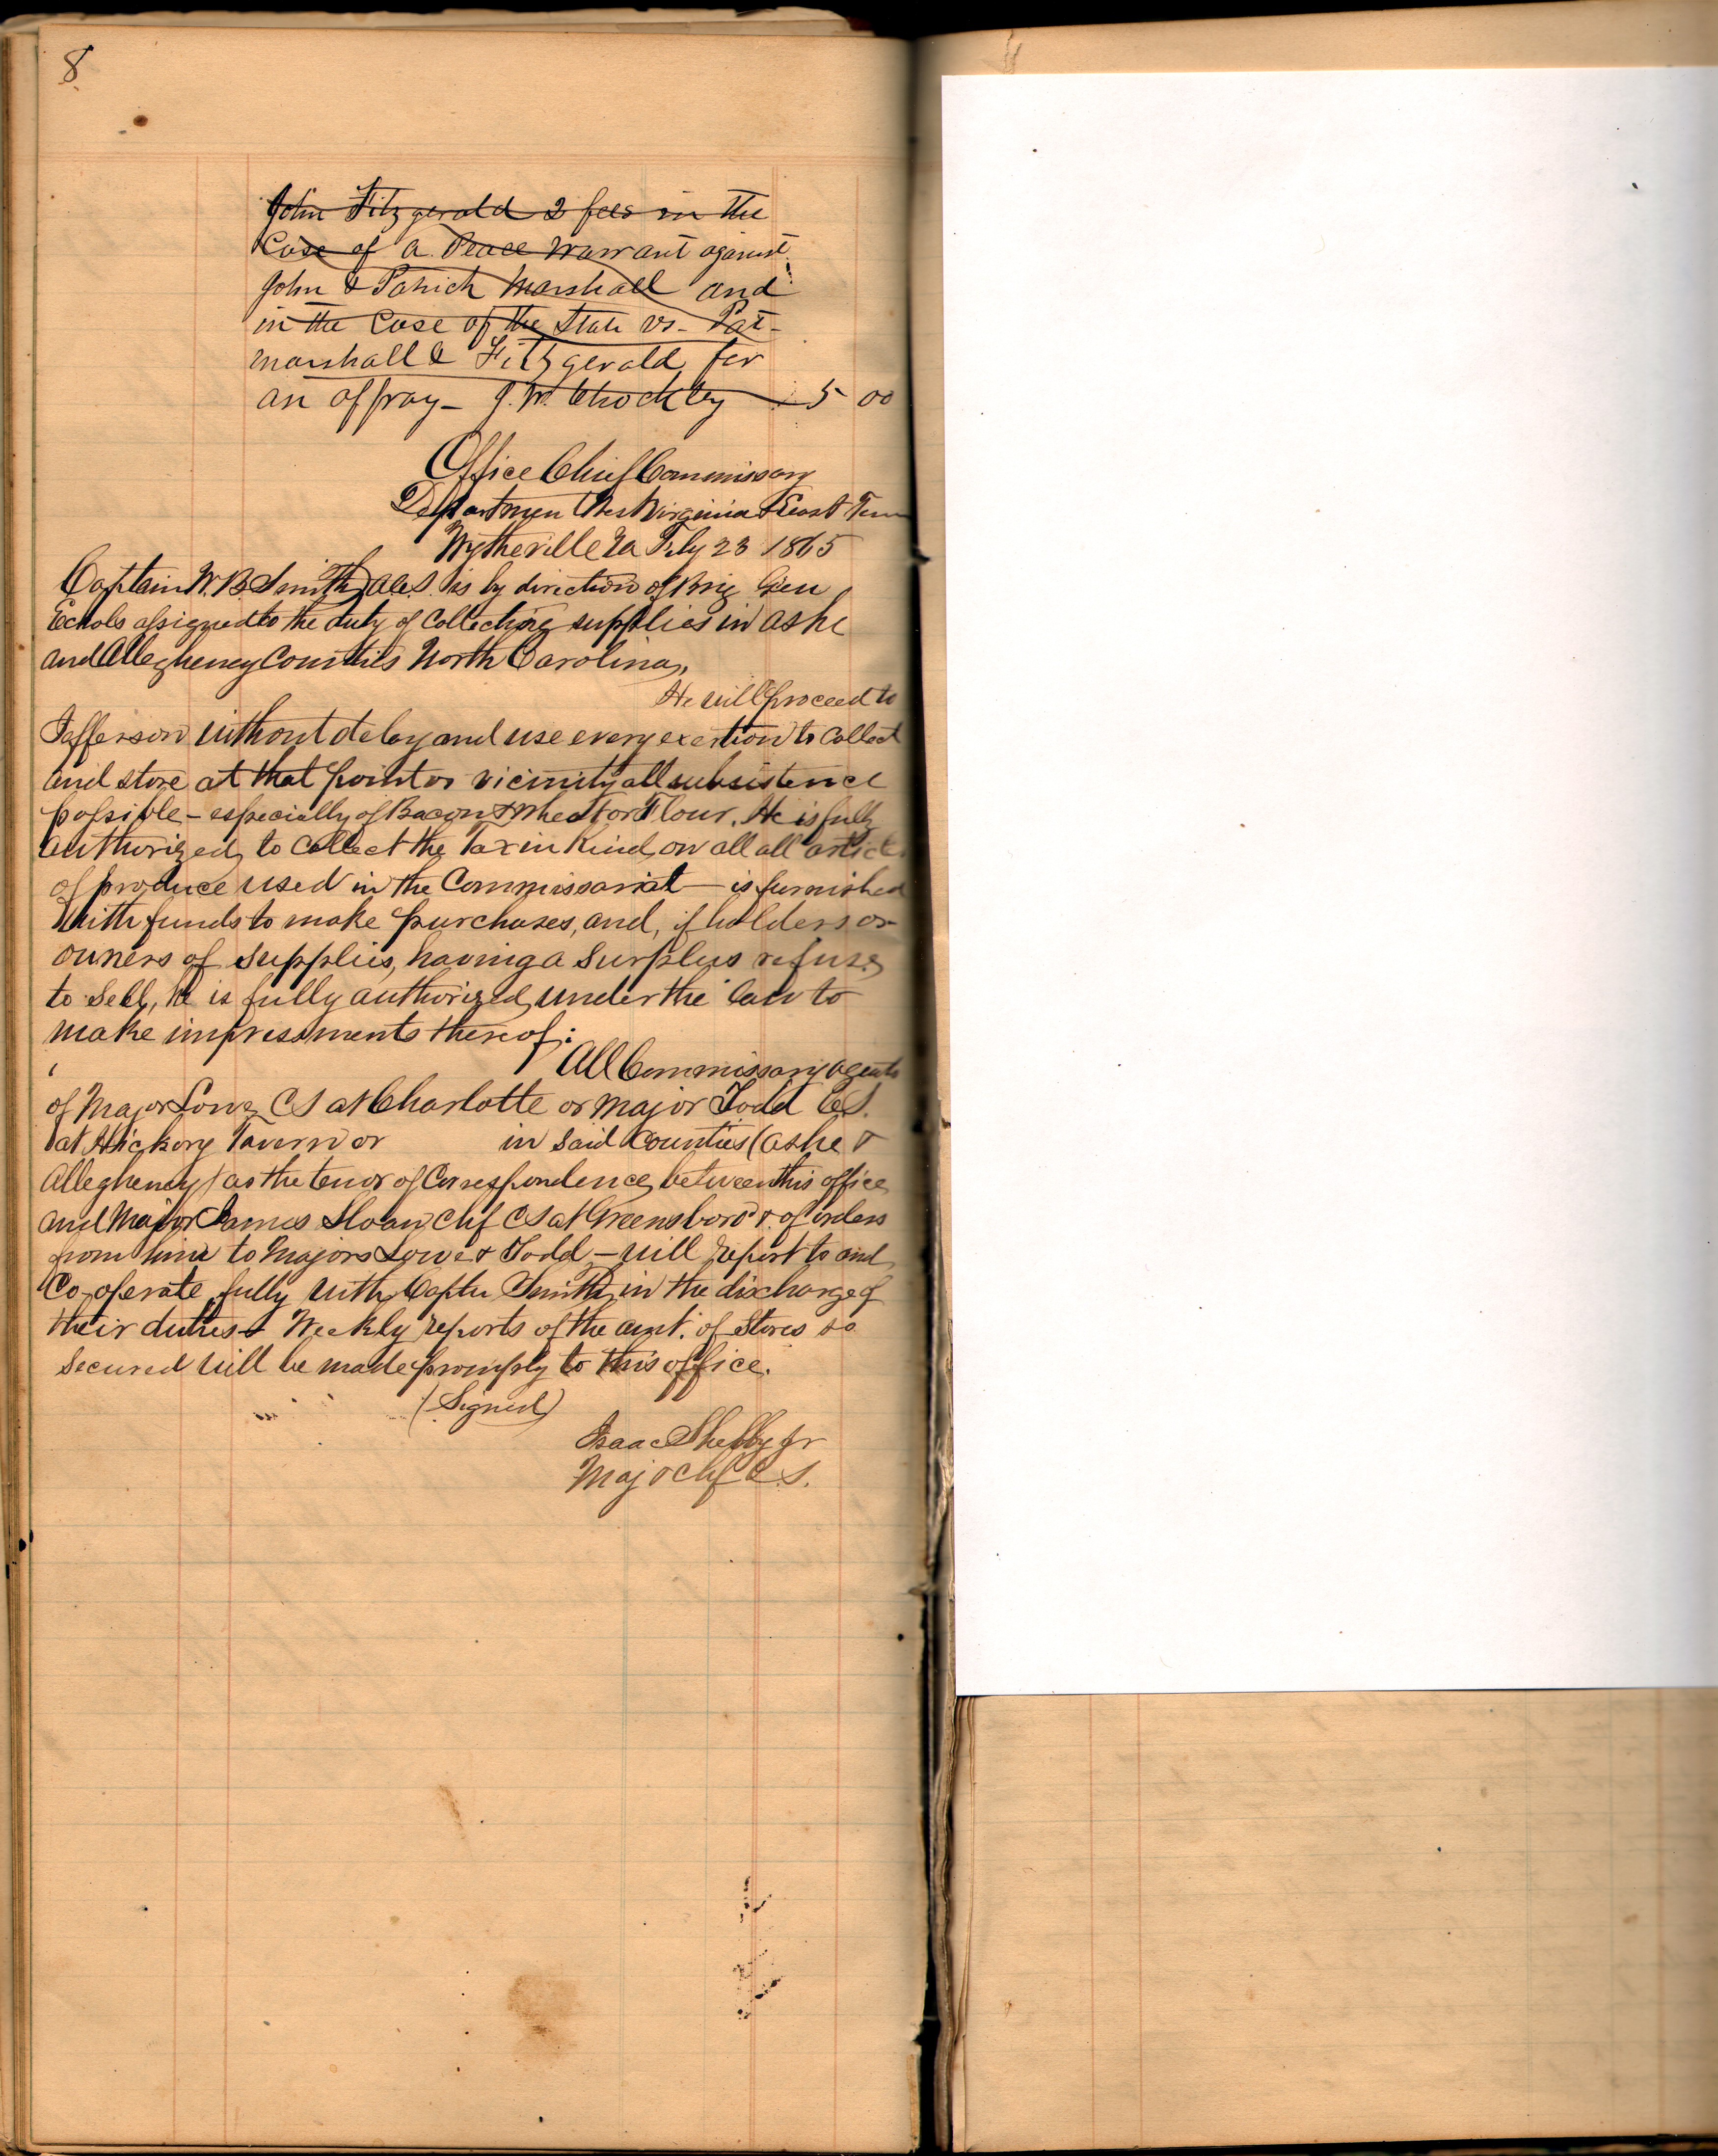 8
John Fitzgerald 2 fees in the
Case of a Peace Warrant against
John & Patrick Marshall and
in the Case of the State vs - Pat -
Marshall & Fitzgerald for
an affray - J. W. 5 00
Office Chief Commissary
Departmen Wes Virginia & East Tenn
Wytheville Va Feby 23 1865
Captain W. B. Smith A C. S. is by direction of Brig Gen
Echols assigned to the duty of Collecting supplies in Ashe
and Allegheney Counties North Carolina,
He will proceed to
Jefferson without delay and use every exertion to Collect
and store at that point or vicinity all subsistence
possible - especially of Bacon & Wheat or Flour. He is fully
authorized to Collect the Tax in Kind, on all all articles
of produce used in the Commissariat - is furnished
with funds to make purchases, and, if holders or
owners of supplies, having a surplus refuse
to Sell, he is fully authorized under the law to
make impressments thereof:
All Commissary agents
of Major Lowe C S at Charlotte or Major Todd C S.
at Hickory Tavern or in said Counties (Ashe &
Allegheney) as the tenor of Correspondence between this office
and Major James Sloan Chf C S at Greensboro & of orders
from him to Majors Lowe & Todd - will report to and
Co-operate fully with Captn Smith in the discharge of
their duties - Weekly reports of the amt. of Stores so
Secured will be made promply to this office.
(Signed)
Isaac Shelby Jr
Maj & Chf C. S.